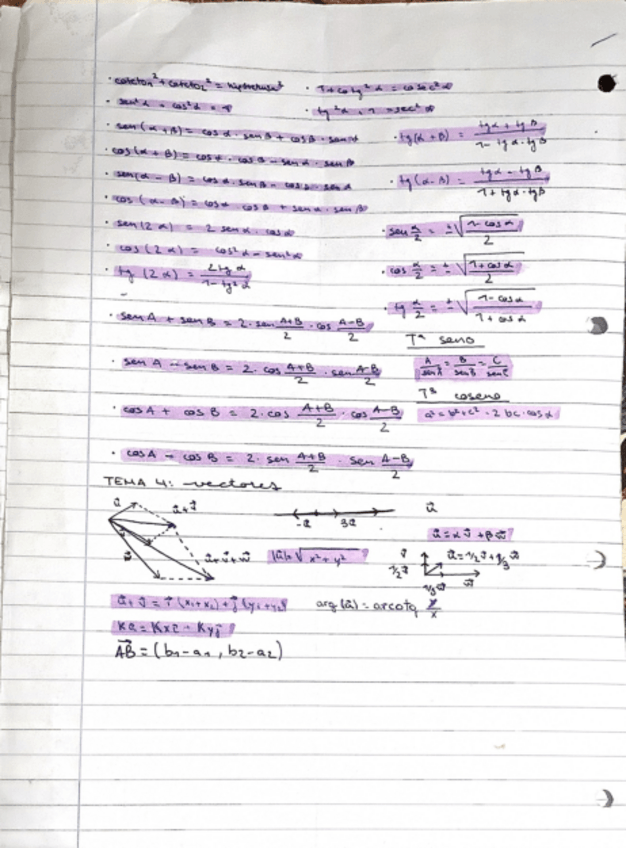 · cateto1² + cateto2² = hipotenusa²
· 1 + cotg²α = cosec²α
· sen²α + cos²α = 1
· tg²α + 1 = sec²α
· sen(α+β) = cosα · senβ + cosβ · senα
· tg(α+β) = (tgα + tgβ)/(1 - tgα · tgβ)
· cos(α+β) = cosα · cosβ - senα · senβ
· sen(α-β) = cosα · senβ - cosβ · senα
· tg(α-β) = (tgα - tgβ)/(1 + tgα · tgβ)
· cos(α-β) = cosα cosβ + senα · senβ
· sen(2α) = 2 senα · cosα
· sen α/2 = ±√((1 - cosα)/2)
· cos(2α) = cos²α - sen²α
· cos α/2 = ±√((1 + cosα)/2)
· tg(2α) = 2tgα/(1 - tg²α)
· tg α/2 = ±√((1 - cosα)/(1 + cosα))
· senA + senB = 2 · sen (A+B)/2 · cos (A-B)/2
Tª seno
· senA - senB = 2 · cos (A+B)/2 · sen (A-B)/2
A/senÂ = B/senB̂ = C/senĈ
Tª coseno
· cosA + cosB = 2 · cos (A+B)/2 · cos (A-B)/2
a² = b² + c² - 2bc · cosα
· cosA - cosB = 2 · sen (A+B)/2 · sen (A-B)/2
TEMA 4: vectores
u⃗ u⃗+v⃗
u⃗+v⃗+w⃗
-u⃗ 3u⃗
u⃗
u⃗ = αv⃗ + βw⃗
|u⃗| = √(x² + y²)
v⃗ 1/2v⃗ u⃗ = 1/2v⃗ + 1/3w⃗
1/3w⃗ w⃗
u⃗ + v⃗ = i⃗(x1+x2) + j⃗(y1+y2)
arg(u⃗) = arcotg y/x
Ku⃗ = Kxi⃗ + Kyj⃗
AB⃗ = (b1-a1, b2-a2)